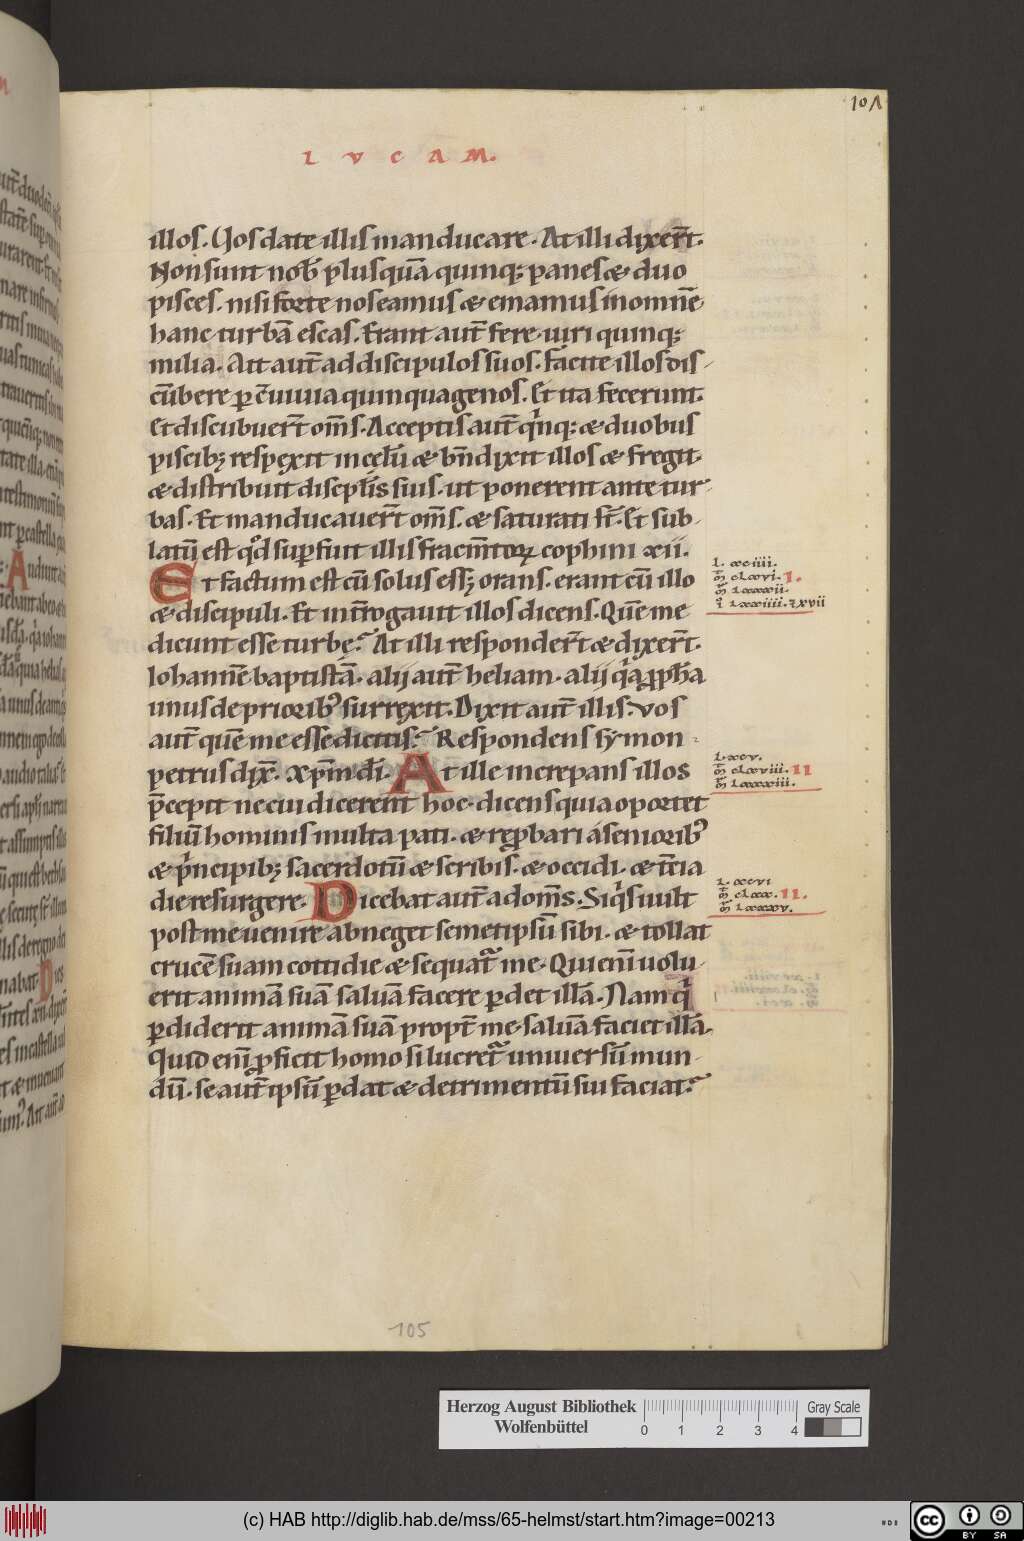 101
LVCAM.
illos. Vos date illis manducare. At illi dixer̄t.
Non sunt nob̄ plusquā quinq; panes & duo
pisces. nisi forte nos eamus & emamus in omnē
hanc turbā escas. Erant aut̄ fere uiri quinq;
milia. Ait aut̄ ad discipulos suos. facite illos dis-
cūbere ꝑ cōuiuia quinquagenos. Et ita fecerunt.
Et discubuer̄t om̄s. Acceptis aut̄ qͥnq; & duobus
piscibꝫ respexit in cęlū & bn̄dixit illos & fregit.
& distribuit discipl̄is suis. ut ponerent ante tur-
bas. Et manducauer̄t om̄s. & saturati st̄. Et sub-
latū est qͦd suꝑfuit illis fracm̄toꝝ cophini xii.
Et factum est cū solus essꝫ orans. erant cū illo
& discipuli. Et int̄rogauit illos dicens. Quē me
dicunt esse turbę? At illi responder̄t & dixer̄t.
Iohannē baptistā. alij aut̄ heliam. alij qͥa ꝓph̄a
unus de prioribꝰ surrexit. Dixit aut̄ illis. Vos
aut̄ quē me esse dicitis? Respondens symon
petrus dix̄. xp̄m dī. At ille increpans illos
p̄cepit ne cui dicerent hoc. dicens quia oportet
filiū hominis multa pati. & reꝓbari a senioribꝰ
& pͥncipibꝫ sacerdotū & scribis. & occidi. & t̄cia
die resurgere. Dicebat aut̄ ad om̄s. Si qͥs uult
post me uenire abneget semetipsū sibi. & tollat
crucē suam cottidie & sequat᷑ me. Qui enī uolu-
erit animā suā saluā facere ꝑdet illā. Nam qͥ
ꝑdiderit animā suā propt̄ me saluā faciet illā.
Quid enī ꝓficit homo si lucret᷑ uniuersū mun-
dū. se aut̄ ipsū ꝑdat & detrimentū sui faciat?
L. xciiii.
m̄ clxvi. I.
m̄ lxxxii.
io lxxiiii. ⁊xvii
L. xcv.
m̄ clxviii. II
m̄ lxxxiii.
L. xcvi
m̄ clxx. II.
m̄ lxxxv.
105
Herzog August Bibliothek
Wolfenbüttel
0 1 2 3 4
Gray Scale
(c) HAB http://diglib.hab.de/mss/65-helmst/start.htm?image=00213
cc BY SA